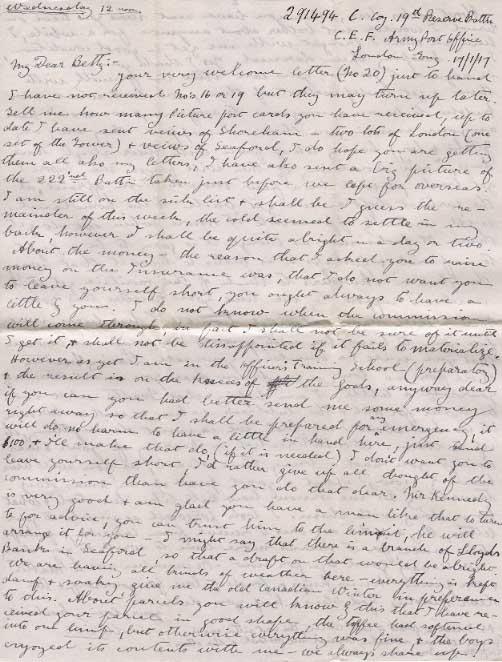 Wednesday 12 noon
291494. C. Coy. 19th Reserve Battn
C.E.F. Army Post Office
London Eng. 17/1/17
My Dear Betty:-
your very welcome letter (No 20) just to hand
I have not received No's 16 or 19 but they may turn up later.
Tell me how many Picture post cards you have received, up to
date I have sent veiws of Shoreham & two lots of London (one
set of the Tower) & veiws of Seaford, I do hope you are getting
them all also my letters, I have also sent a big picture of
the 222nd Battn taken just before we left for overseas.
I am still on the sick list & shall be I guess the re-
mainder of this week, the cold seemed to settle in my
back, however I shall be quite alright in a day or two
About the money – the reason that I asked you to raise
money on the Insurance was, that I do not want you
to leave yourself short, you ought always to have a
little by you. I do not know when the commission
will come through, in fact I shall not be sure of it until
I get it, & shall not be dissappointed if it fails to materialize.
However as yet I am in the officers Training School (preparatory)
& the result is on the knees of the Gods, anyway dear
if you can you had better send me some money
right away so that I shall be prepared for any emergency, it
will do no harm to have a little in hand here, just send
$100 & I'll make that do, (if it is needed) I don't want you to
leave yourself short, I'd rather give up all thought of the
commission than have you do that dear, Mr Kennedy
is very good & am glad you have a man like that to turn
to for advice, you can trust him to the limit, he will
arrange it for you – I might say that there is a branch of Lloyds
Bank in Seaford, so that a draft on that would be alright.
We are having all kinds of weather here – everything is kept
damp & soaky, give me the old Canadian Winter in preference
to this. About parcels you will know by this that I have re-
ceived your parcel in good shape, the toffee had softened
into one lump, but otherwise everything was fine & the boys
enjoyed its contents with me – we always share up!